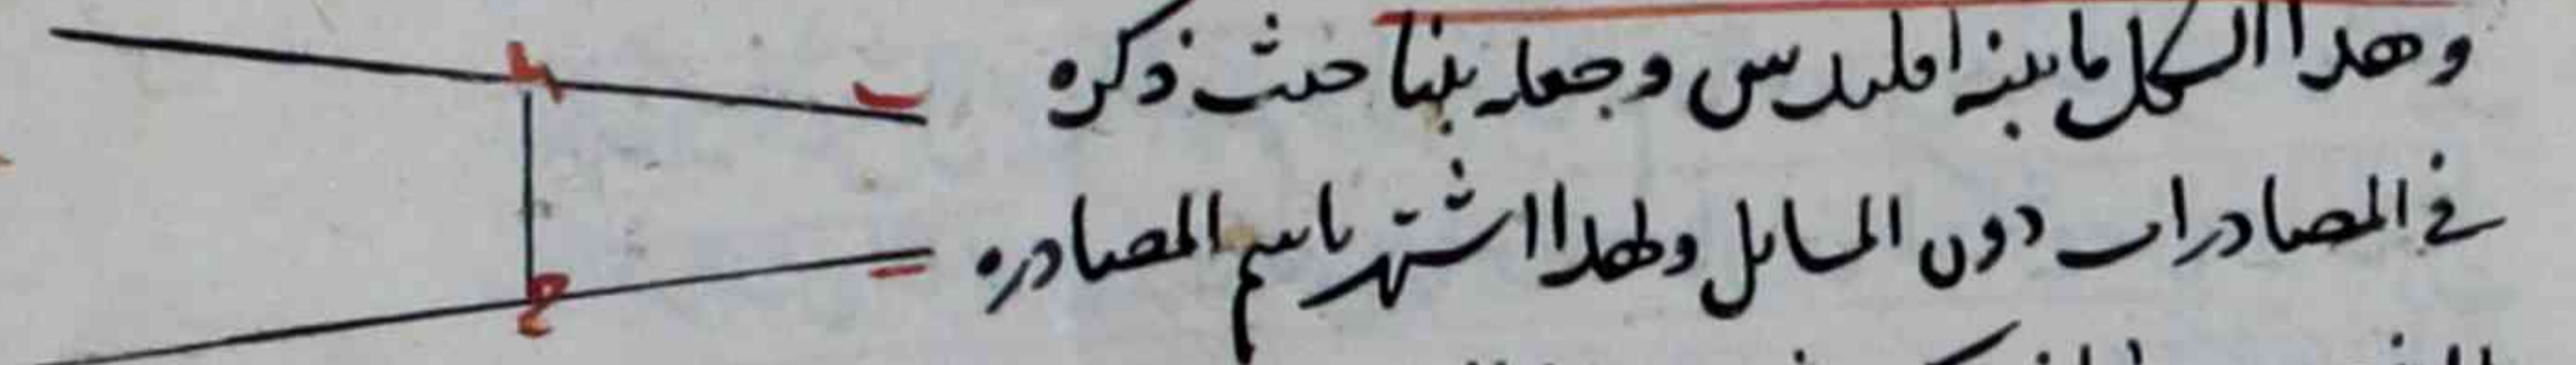 وهذا الشكل ما بينه اقليدس وجعله بينا حيث ذكره
في المصادرات دون المسايل ولهذا اشتهر باسم المصادره